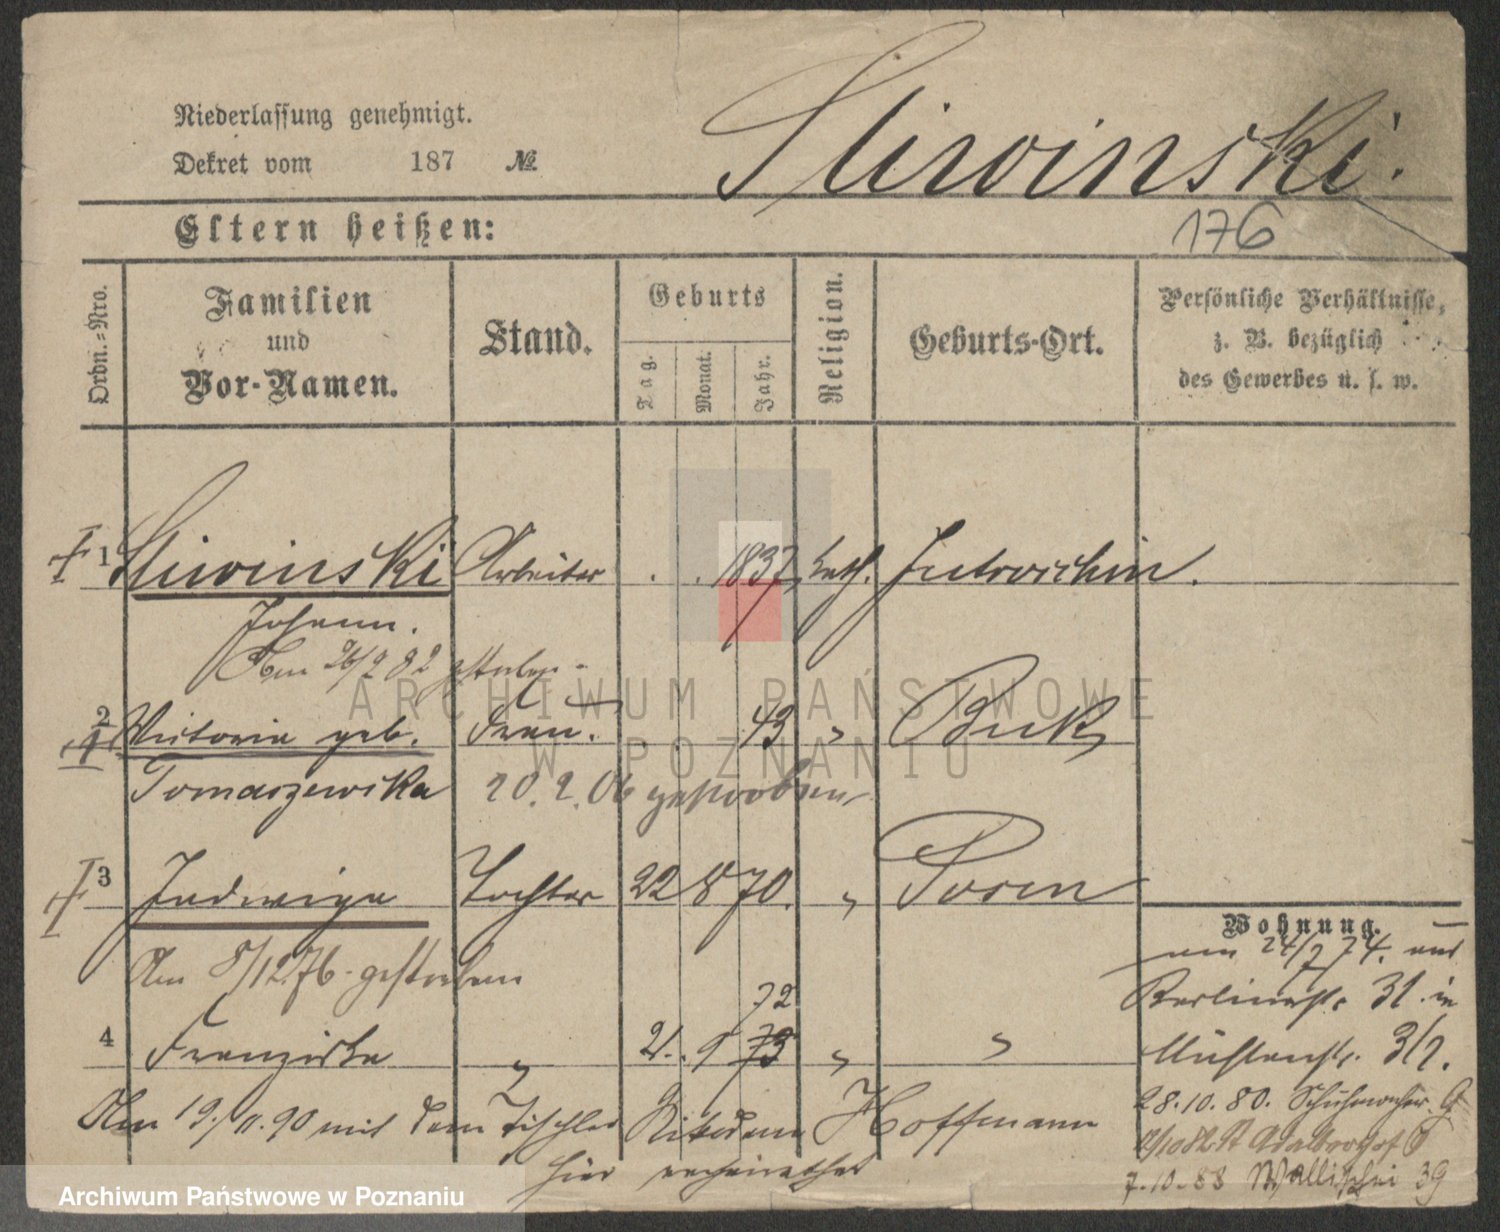 Niederlassung genehmigt.
Dekret vom 187 №
Sliwinski.
Eltern heißen:
176
Ordn.-Nro.
Familien
und
Vor-Namen.
Stand.
Geburts
Tag.
Monat.
Jahr.
Religion.
Geburts-Ort.
Persönliche Verhältnisse,
z. B. bezüglich
des Gewerbes u. s. w.
1 Sliwinski Arbeiter . . 1837 kath. Jutroschin.
Johann.
Am 26/2 82 gestorben.
2 Victoria geb. Frau. 43 " Buk
Tomaszewska 20.2.06 gestorben
3 Jadwiga Tochter 22 8 70. " Posen
Am 8/12.76. gestorben
72
4 Franziska " 21. 9 73 " "
Am 19./11.90 mit dem Tischler Nikodem Hoffmann
hier verheirathet
Wohnung.
am 24/7 74. aus
Berlinerstr. 31. in
Mühlenstr. 3/7.
28.10.80. Schuhmacher
Adalbert
7.10.88 Wallischei 39
ARCHIWUM PAŃSTWOWE
W POZNANIU
Archiwum Państwowe w Poznaniu